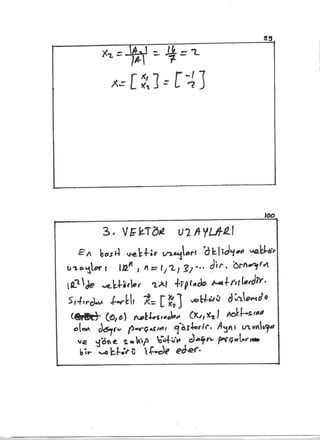 99
x₂ = |A₂| / |A| = 16/7 = 2
x = [x₁ x₂] = [-1 2]
100
3. VEKTÖR UZAYLARI
En basit vektör uzayları öklidyen vektör
uzayları ℝⁿ, n = 1, 2, 3, ... dir. Örneğin
ℝ² 'de vektörler 2x1 tipinde matrislerdir.
Sıfırdan farklı x = [x₁ x₂] vektörü düzlemde
(0,0) noktasından (x₁, x₂) noktasına
olan doğru parçasını gösterir. Aynı uzunluğa
ve yöne sahip bütün doğru parçaları
bir vektörü ifade eder.